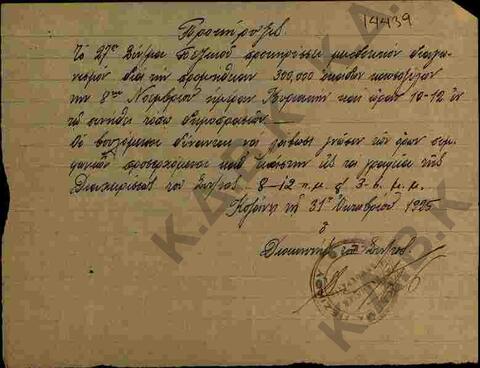 14439
Προκήρυξις
Το 27ον Σύν/μα Πεζικού προκηρύσσει μειοδοτικόν διαγω-
νισμόν δια την προμήθειαν 300,000 οκάδων καυσοξύλων
την 8ην Νοεμβρίου ημέραν Κυριακήν και ώραν 10-12 εν
τω συνήθει τόπω δημοπρασιών.
Οι βουλόμενοι δύνανται να λάβωσι γνώσιν των όρων συμ-
φωνιών προσερχόμενοι καθ' εκάστην εις τα γραφεία της
Διαχειρίσεως του Συν/τος 8-12 π.μ. & 3-6 μ.μ.
Κοζάνη τη 31η Οκτωβρίου 1925
ο
Διοικητής του Συν/τος
Κ.Δ.Β.Κ